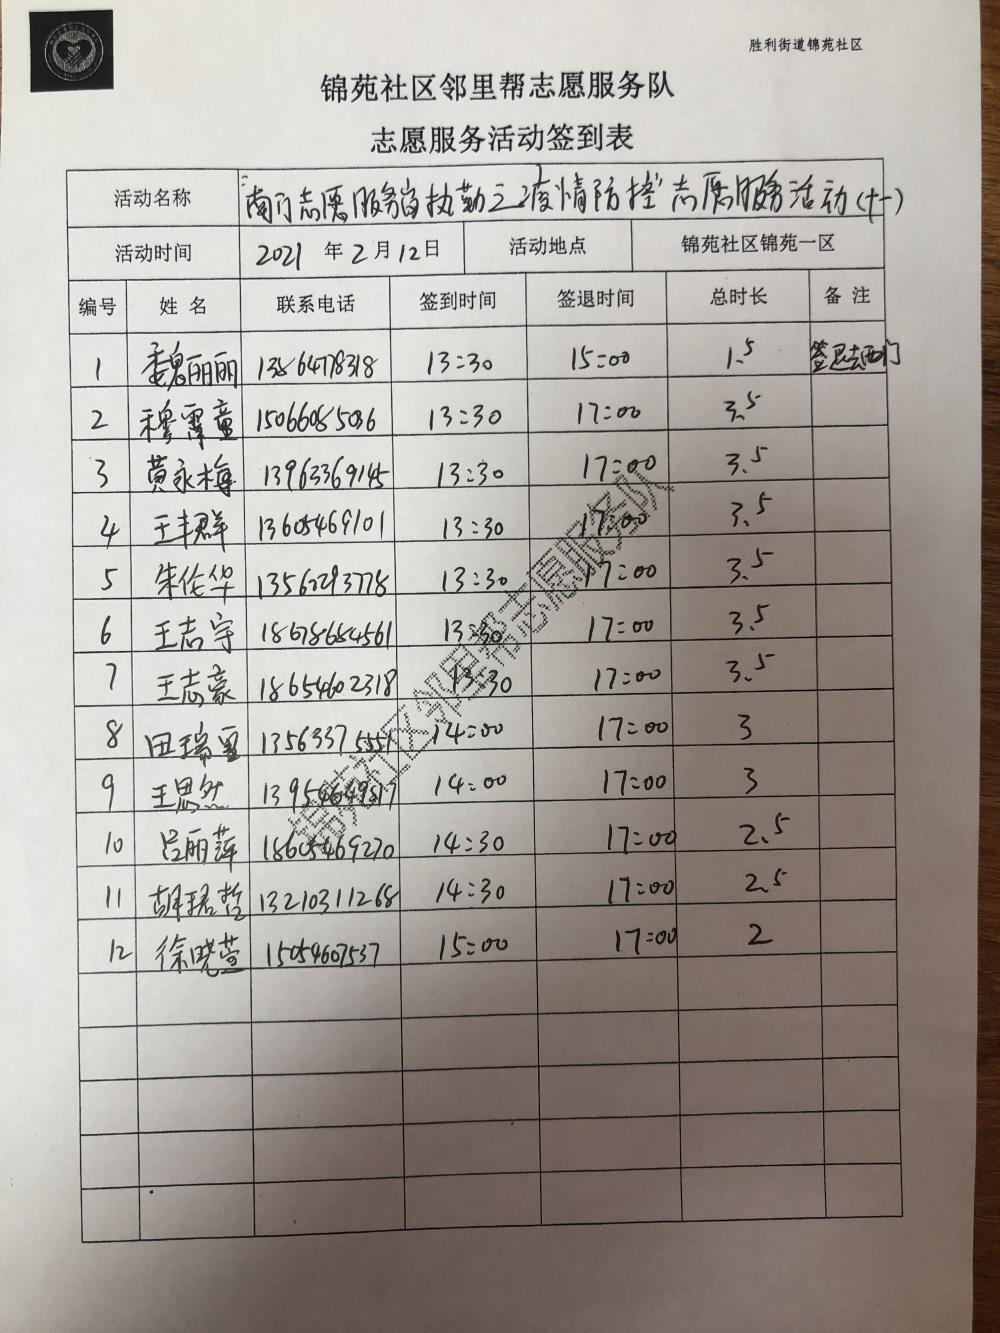 胜利街道锦苑社区
锦苑社区邻里帮志愿服务队
志愿服务活动签到表
活动名称 南门志愿服务岗执勤之"疫情防控"志愿服务活动(十一)
活动时间 2021 年 2 月 12 日 活动地点 锦苑社区锦苑一区
编号 姓 名 联系电话 签到时间 签退时间 总时长 备 注
1 魏丽丽 13864778318 13:30 15:00 1.5 签退去西门
2 穆霄童 15066085036 13:30 17:00 3.5
3 黄永梅 13963369145 13:30 17:00 3.5
4 王丰群 13605469101 13:30 17:00 3.5
5 朱伦华 13:30 17:00 3.5
6 王志宇 18678684561 13:30 17:00 3.5
7 王志豪 18654602318 13:30 17:00 3.5
8 田瑞 13563375551 14:00 17:00 3
9 王思然 14:00 17:00 3
10 吕丽萍 18605469270 14:30 17:00 2.5
11 胡珺哲 13210311268 14:30 17:00 2.5
12 徐晓萱 15054607537 15:00 17:00 2
锦苑社区邻里帮志愿服务队